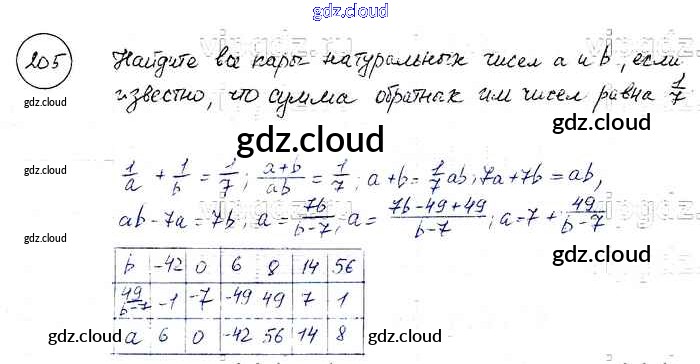 gdz.cloud
205 Найдите все пары натуральных чисел a и b, если
gdz.cloud
известно, что сумма обратных им чисел равна 1/7
gdz.cloud
gdz.cloud
gdz.cloud
1/a + 1/b = 1/7; (a+b)/ab = 1/7; a+b = 1/7 ab; 7a+7b = ab,
gdz.cloud
ab-7a = 7b; a = 7b/(b-7); a = (7b-49+49)/(b-7); a = 7 + 49/(b-7)
b -42 0 6 8 14 56
gdz.cloud
49/(b-7) -1 -7 -49 49 7 1
a 6 0 -42 56 14 8
gdz.cloud
gdz.cloud
gdz.cloud